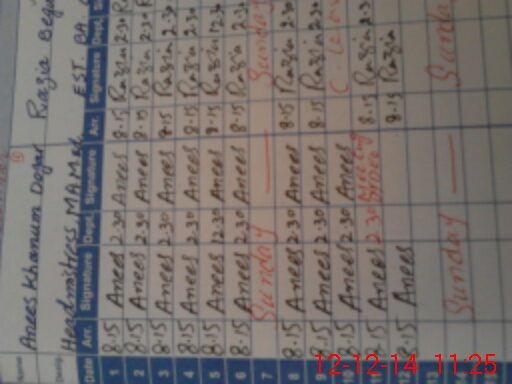 Name Anees Khanum Dogar Razia Beg
Desig. Headmistress MA EST. BA
Date Arr. Signature Dept. Signature Arr. Signature Dept. S
1 8.15 Anees 2.30 Anees 8.15 Razia 2.30
2 8.15 Anees 2.30 Anees 8.15 Razia 2.30
3 8.15 Anees 2.30 Anees 8.15 Razia 2.30
4 8.15 Anees 2.30 Anees 8.15 Razia 2.30
5 8.15 Anees 12.30 Anees 8.15 Razia 12.30
6 8.15 Anees 2.30 Anees 8.15 Razia 2.30
7 Sunday — Sunday
8 8.15 Anees 2.30 Anees 8.15 Razia 2.30
9 8.15 Anees 2.30 Anees 8.15 Razia 2.30
10 8.15 Anees 2.30 Anees C. Leave
11 8.15 Anees 2.30 Meeting 8.15 Razia 2.3
8.15 Anees 8.15 Razia
13
Sunday — Sunday
12-12-14 11:25